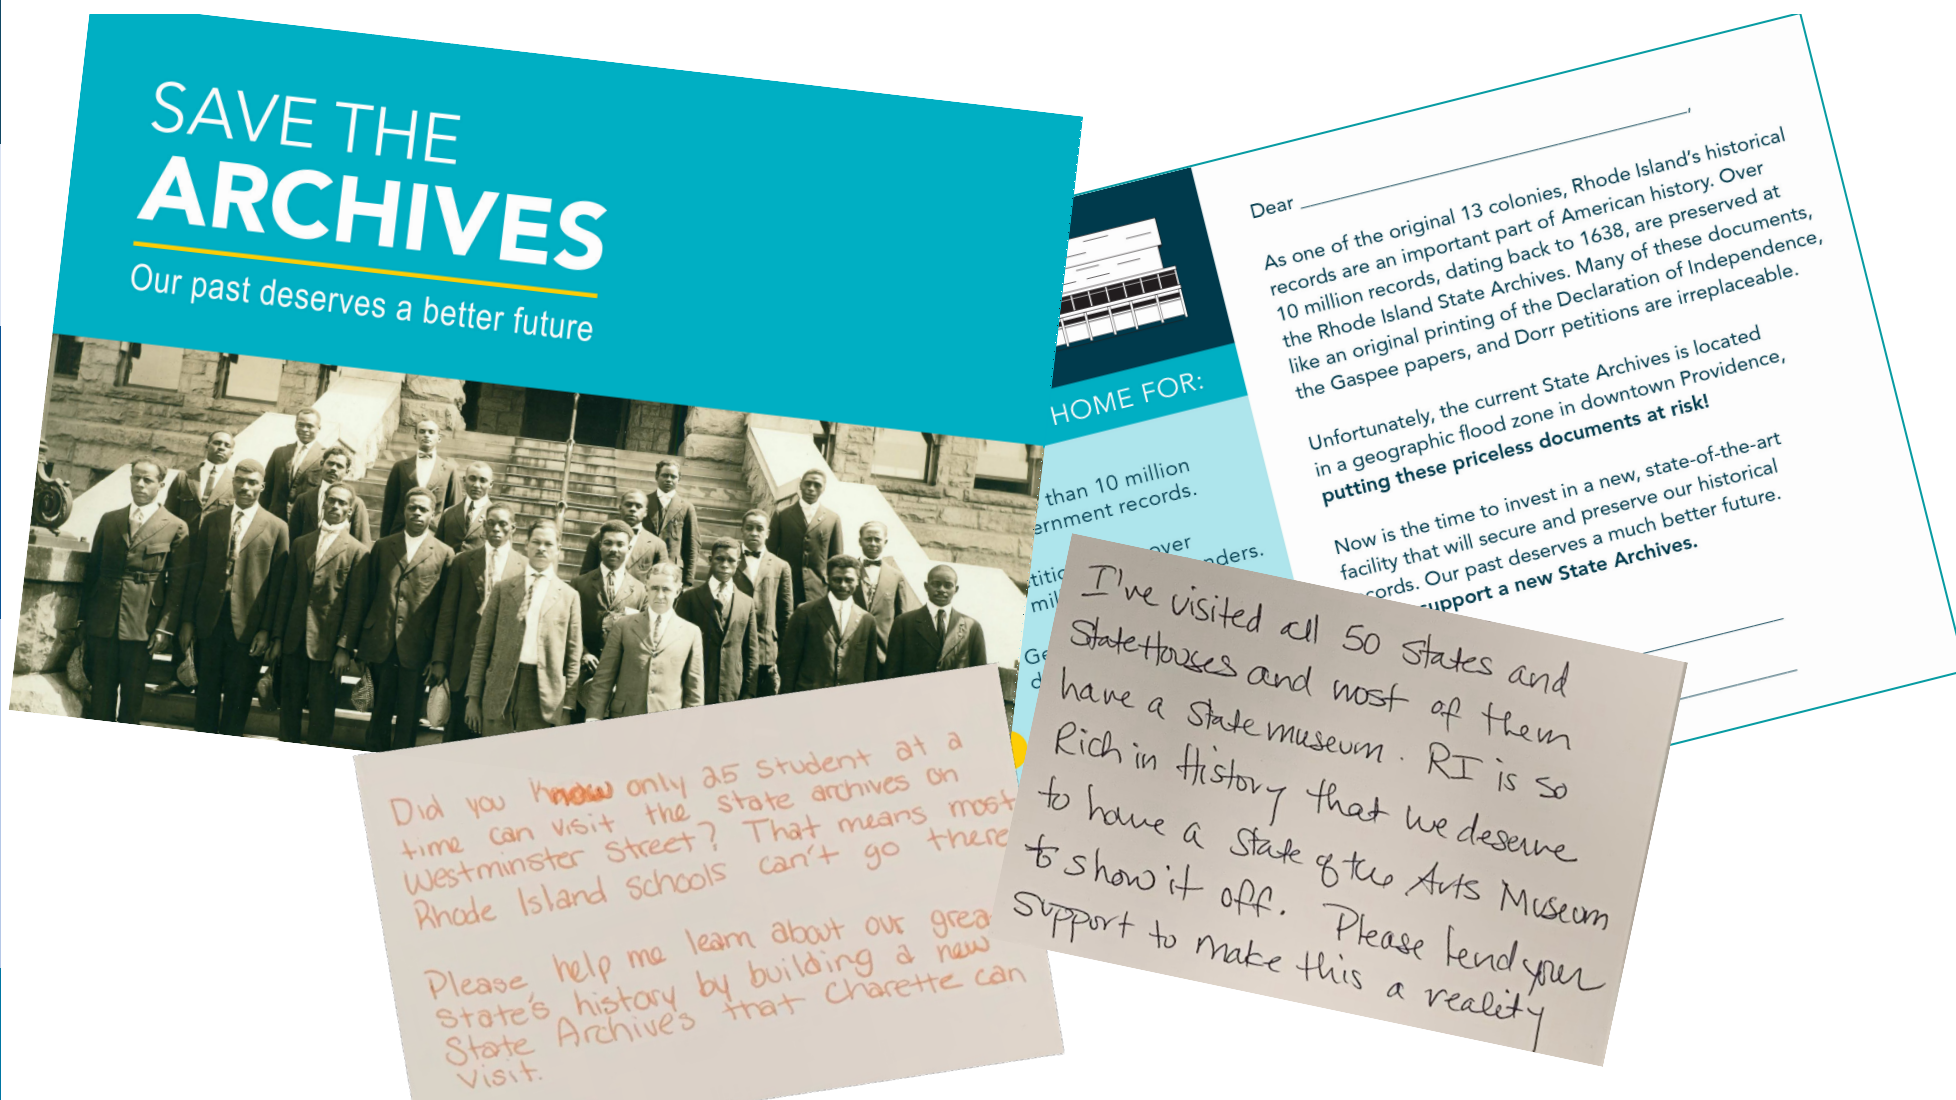 SAVE THE
ARCHIVES
Our past deserves a better future
Dear
As one of the original 13 colonies, Rhode Island's historical
records are an important part of American history. Over
10 million records, dating back to 1638, are preserved at
the Rhode Island State Archives. Many of these documents,
like an original printing of the Declaration of Independence,
the Gaspee papers, and Dorr petitions are irreplaceable.
Unfortunately, the current State Archives is located
in a geographic flood zone in downtown Providence,
putting these priceless documents at risk!
Now is the time to invest in a new, state-of-the-art
facility that will secure and preserve our historical
cords. Our past deserves a much better future.
support a new State Archives.
HOME FOR:
than 10 million
ernment records.
over
nders.
Did you know only 25 student at a
time can visit the state archives on
Westminster Street? That means most
Rhode Island schools can't go there
Please, help me learn about our grea
State's history by building a new
State Archives that Charette can
visit.
I've visited all 50 States and
StateHouses and most of them
have a State museum. RI is so
Rich in History that we deserve
to have a State of the Arts Museum
to show it off. Please lend your
support to make this a reality